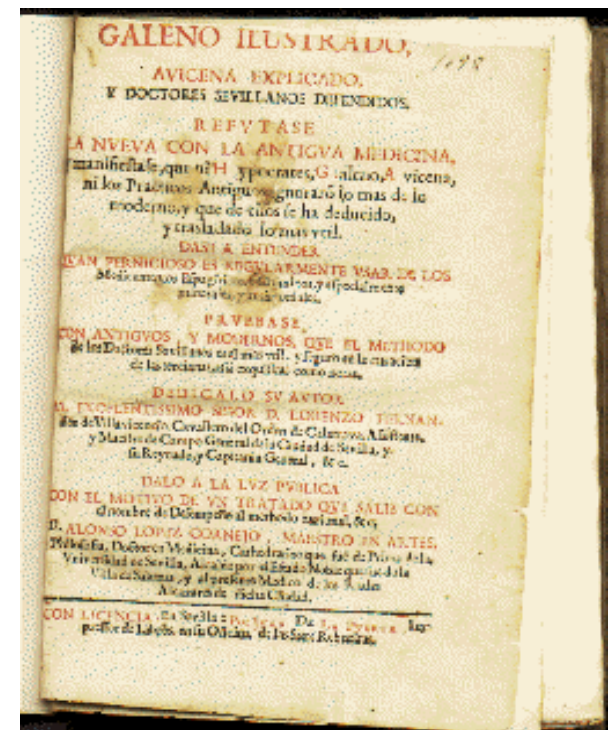 GALENO ILUSTRADO,
1698
AVICENA EXPLICADO,
Y DOCTORES SEVILLANOS DEFENDIDOS.
REFVTASE
LA NVEVA CON LA ANTIGVA MEDICINA,
manifiestase, que ni Hypocrates, Galeno, Avicena,
ni los Practicos Antiguos ignoraró lo mas de lo
moderno, y que de ellos se ha deducido,
y trasladado lo mas vtil.
DASE A ENTENDER
QUAN PERNICIOSO ES REGVLARMENTE VSAR DE LOS
Medicamentos y especialmente
PRVEBASE,
CON ANTIGVOS, Y MODERNOS, QVE EL METHODO
de los Doctores Sevillanos es el mas vtil, y seguro en la curacion
de las tercianas, assi exquisitas como notas.
DEDICALO SV AVTOR
AL EXCELENTISSIMO SEÑOR D. LORENZO FERNAN-
dez de Villavicencio, Cavallero del Orden de Calatrava,
y Maestre de Campo General de la Ciudad de Sevilla, y
su Reynado, y Capitania General, &c.
DALO A LA LVZ PVBLICA
CON EL MOTIVO DE VN TRATADO QVE SALIÓ CON
el nombre de Desempeño al methodo racional, &c.
D. ALONSO LOPEZ CORNEJO, MAESTRO EN ARTES,
Philosofia, Doctor en Medicina, Cathedratico que fué de Prima de la
Vniversidad de Sevilla, Alcalde por el Estado Noble que fue de la
Villa de y al presente Medico de los Reales
Alcazares de dicha Ciudad.
CON LICENCIA. En Sevilla: De La Puerta, Im-
pressor de Libros, en su Oficina, de las Siete Rebueltas.